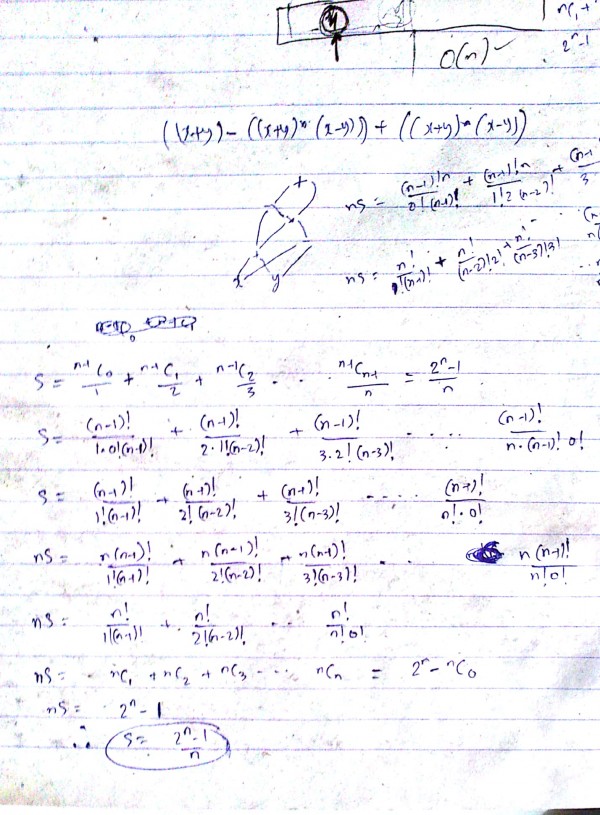 nC₁ +
O(n) ✓
2ⁿ-1
((x+y) - ((x+y)*(x-y))) + ((x+y)*(x-y))
+
nS = (n-1)!n/0!(n-1)! + (n-1)!n/1!2(n-2)! + (n-1)/3
nS = n!/1!(n-1)! + n!/(n-2)!2! + n!/(n-3)!3! ...
x y
S = ⁿ⁻¹C₀/1 + ⁿ⁻¹C₁/2 + ⁿ⁻¹C₂/3 ... ⁿ⁻¹Cₙ₋₁/n = 2ⁿ-1/n
S = (n-1)!/1·0!(n-1)! + (n-1)!/2·1!(n-2)! + (n-1)!/3·2!(n-3)! .... (n-1)!/n·(n-1)!0!
S = (n-1)!/1!(n-1)! + (n-1)!/2!(n-2)! + (n-1)!/3!(n-3)! .... (n-1)!/n!·0!
nS = n(n-1)!/1!(n-1)! + n(n-1)!/2!(n-2)! + n(n-1)!/3!(n-3)! ... n(n-1)!/n!0!
nS = n!/1!(n-1)! + n!/2!(n-2)! ... n!/n!0!
nS = nC₁ + nC₂ + nC₃ .... nCₙ = 2ⁿ - ⁿC₀
nS = 2ⁿ - 1
∴ S = 2ⁿ-1/n